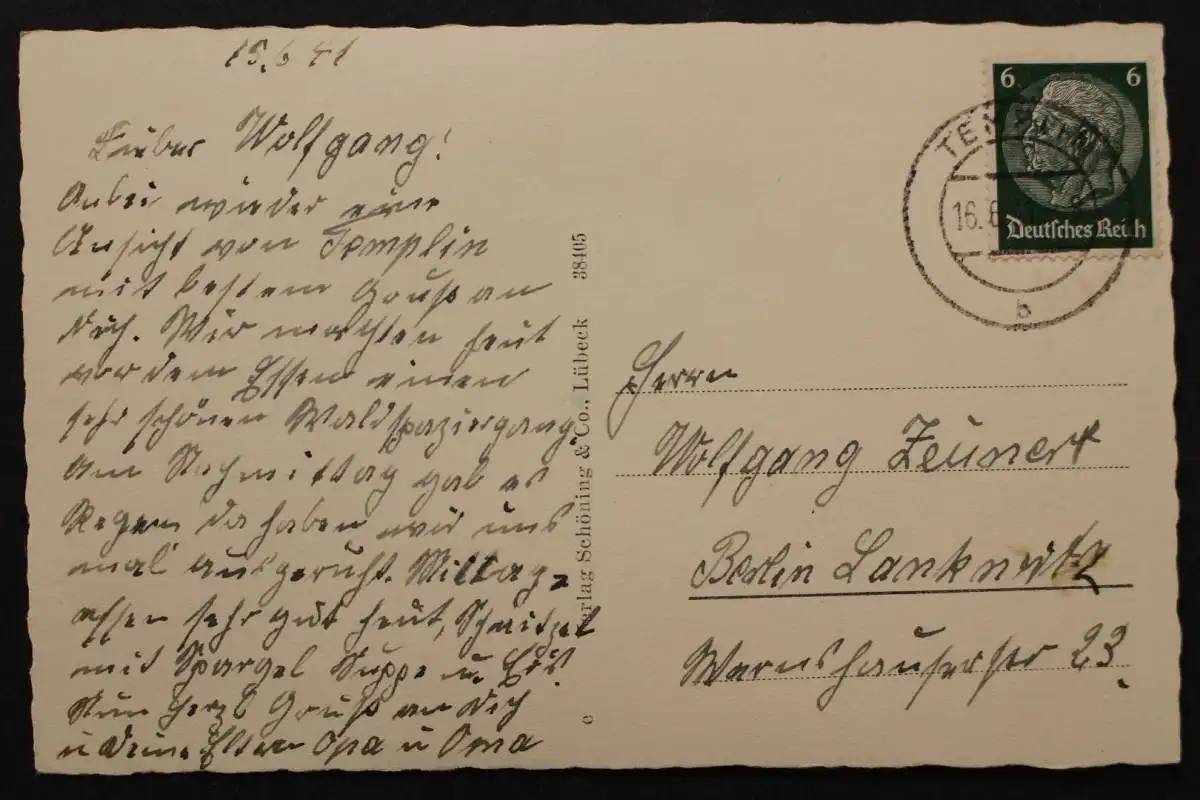 15.6 41
Lieber Wolfgang!
Anbei wieder eine
Ansicht von Templin
mit bestem Gruß an
Dich. Wir machten heut
vor dem Essen einen
sehr schönen Waldspaziergang.
Am Nachmittag gab es
Regen da haben wir uns
mal ausgeruht. Mittag=
essen sehr gut heut, Schnitzel
mit Spargel Suppe u. Eis.
Nun herzl Gruß an Dich
u Deine Eltern Opa u Oma
Verlag Schöning & Co., Lübeck 38405
c
6 6
Deutsches Reich
TEMPLIN
16.6
b
Herrn
Wolfgang Zeunert
Berlin Lankwitz
Wernshauserstr 23.